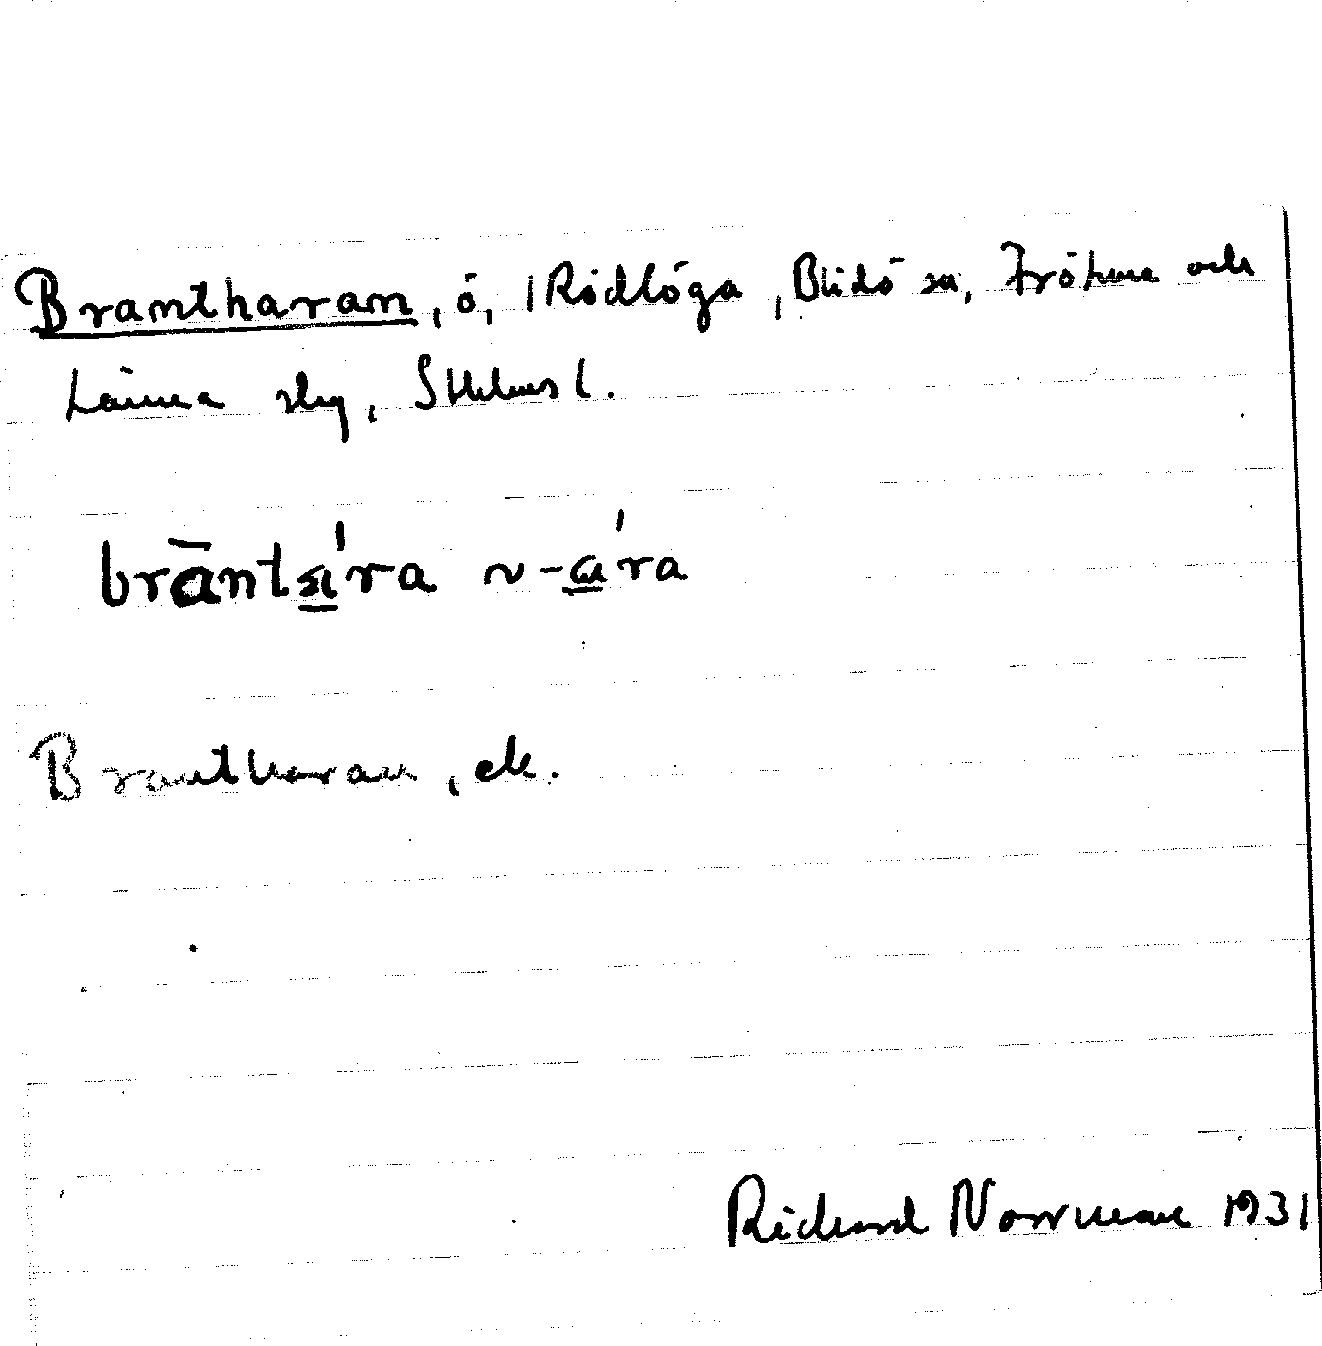 Brantharan, ö, i Rödlöga, Blidö sn, Frötuna och
Länna slg, Sthlms l.
brānta̲'ra ~ -a̲'ra
Brantharan, ek.
Richard Norrman 1931